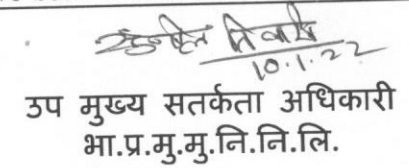 10.1.22
उप मुख्य सतर्कता अधिकारी
भा.प्र.मु.मु.नि.नि.लि.